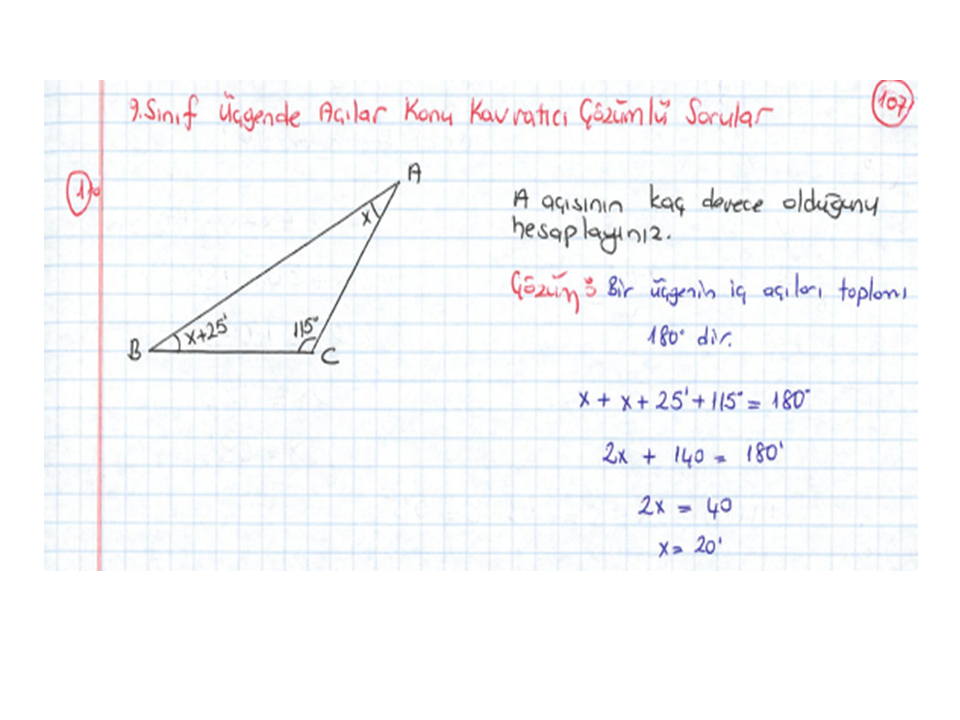 9.Sınıf Üçgende Açılar Konu Kavratıcı Çözümlü Sorular
107
1.
A
x
B
x+25°
115°
C
A açısının kaç derece olduğunu
hesaplayınız.
Çözüm: Bir üçgenin iç açıları toplamı
180° dir.
x + x + 25° + 115° = 180°
2x + 140 = 180°
2x = 40
x = 20°